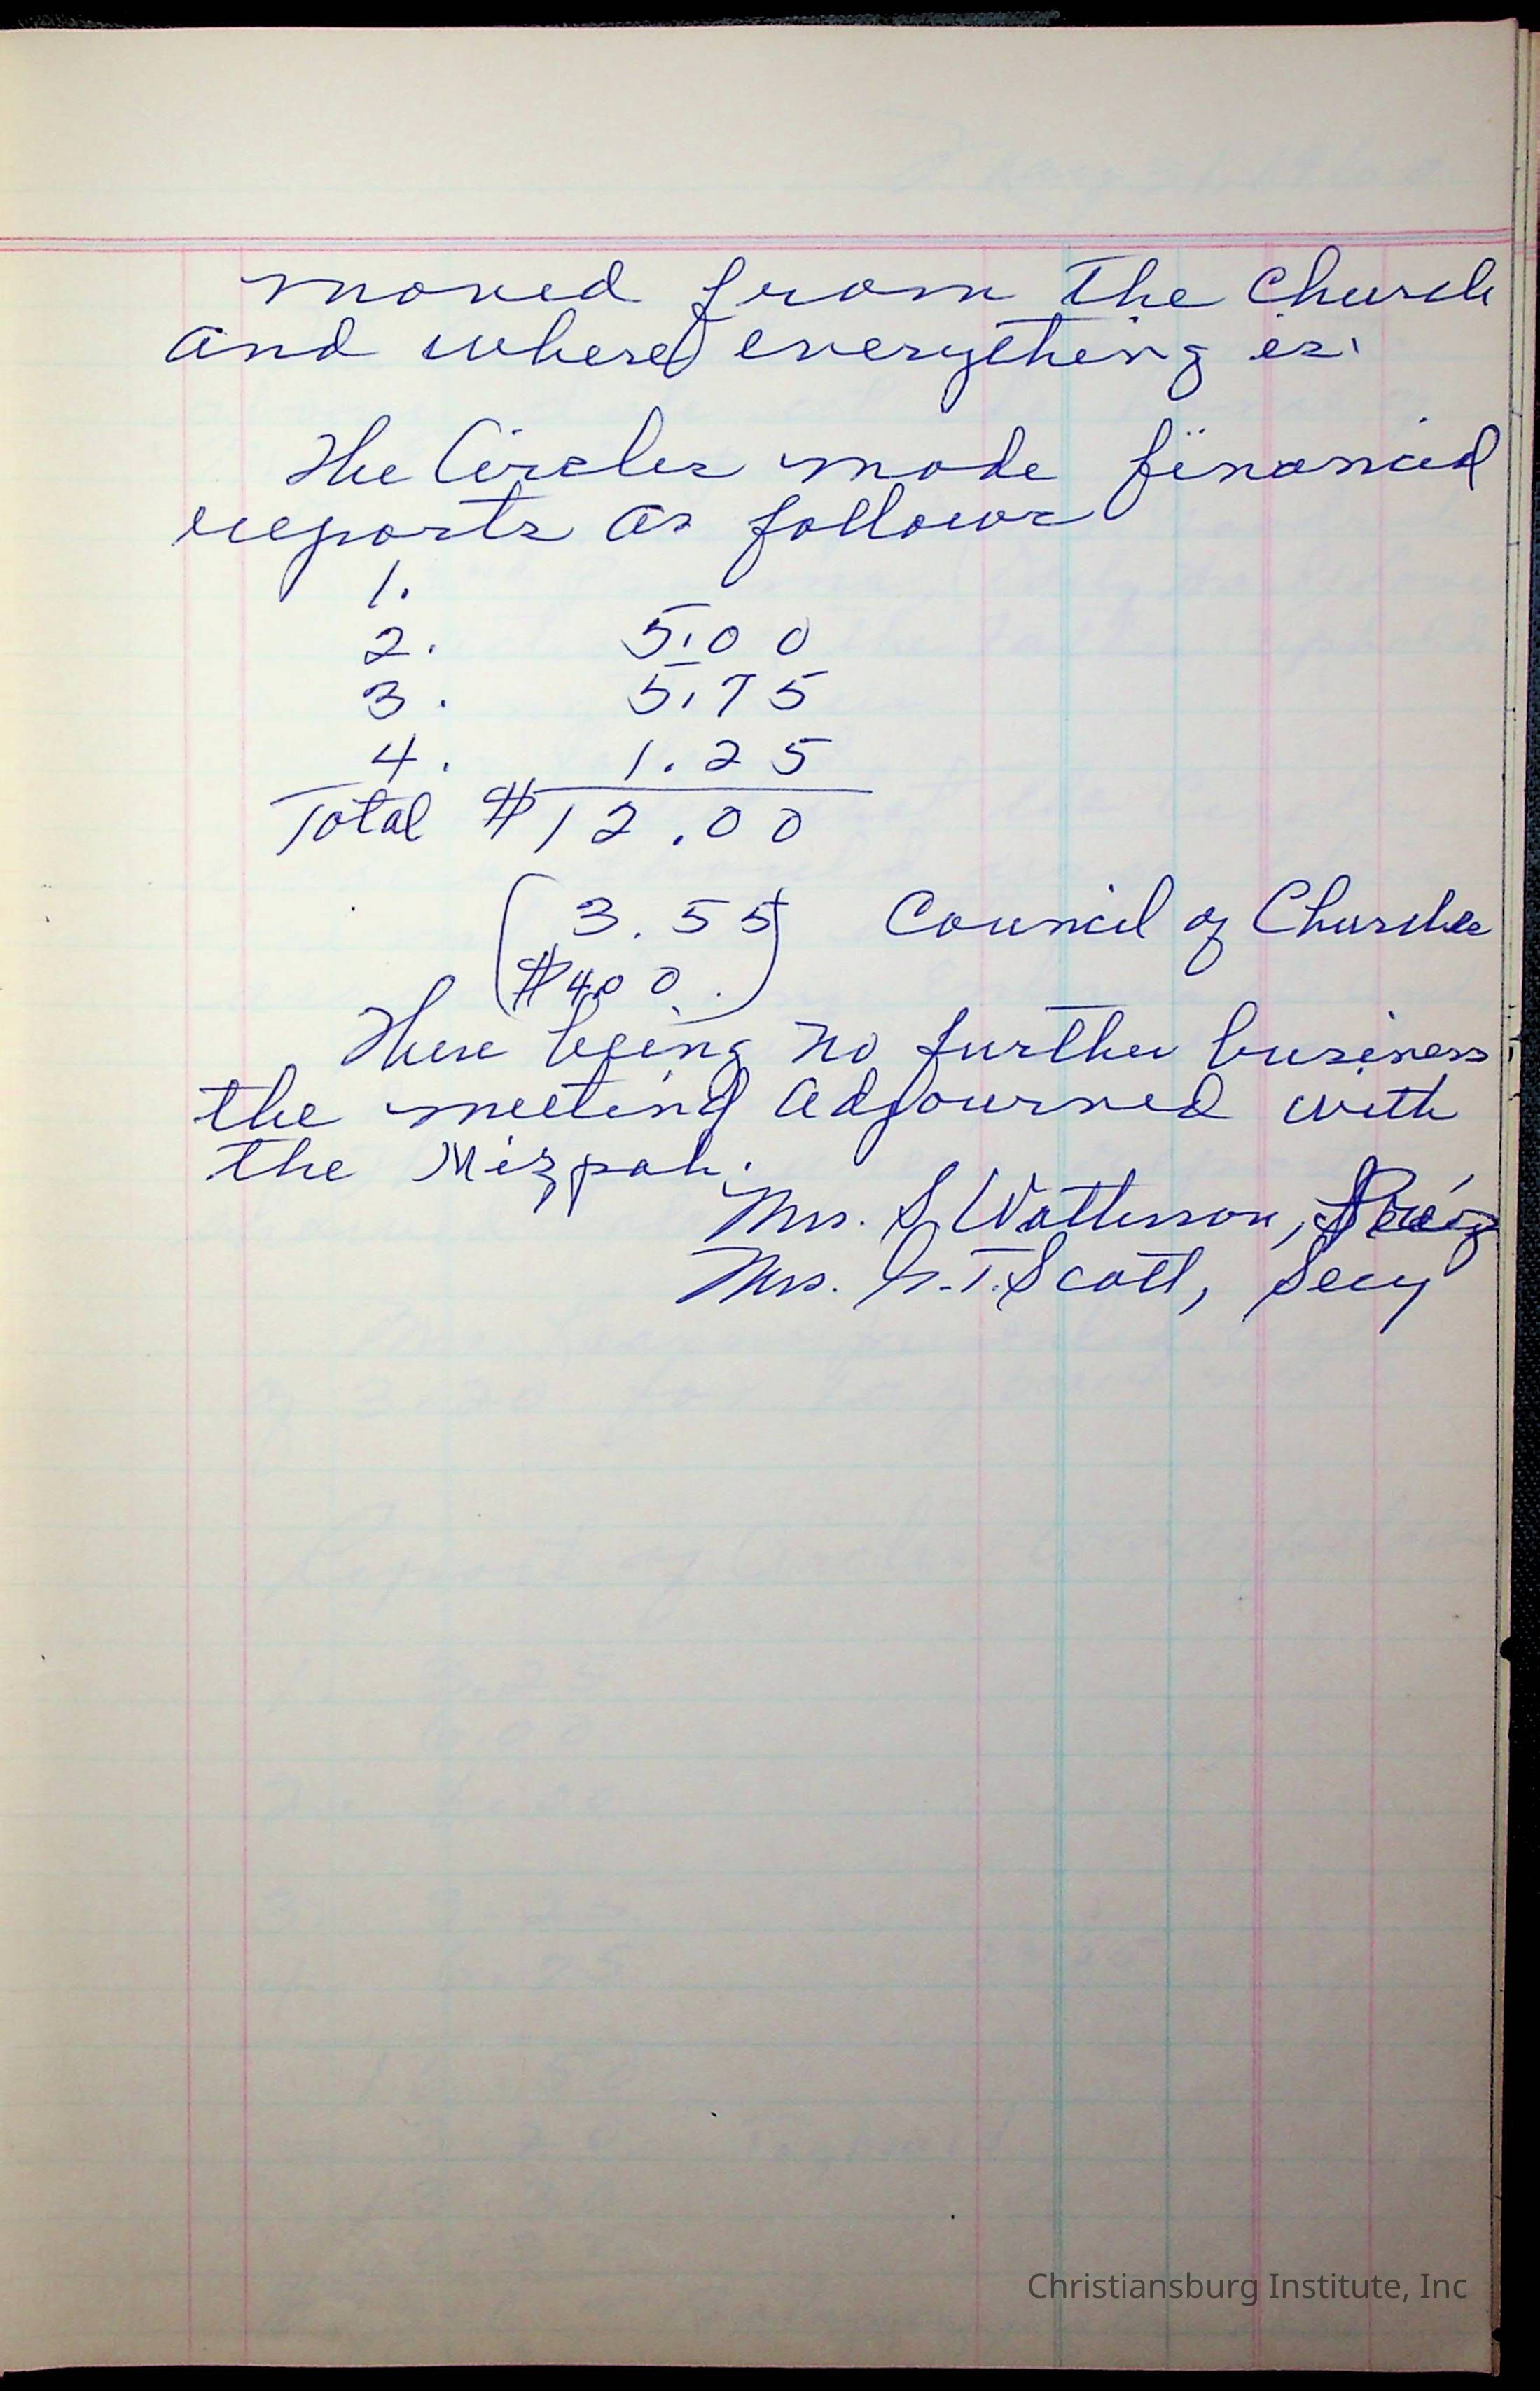 moved from the Church
and where everything is.
The Circles made financial
reports as follows
1.
2. 5.00
3. 5.75
4. 1.25
Total $12.00
(3.55) Council of Churches
$4.00
There being no further business
the meeting adjourned with
the Mizpah.
Mrs. S. Watterson,
Mrs. G.T. Scott, Secy
Christiansburg Institute, Inc